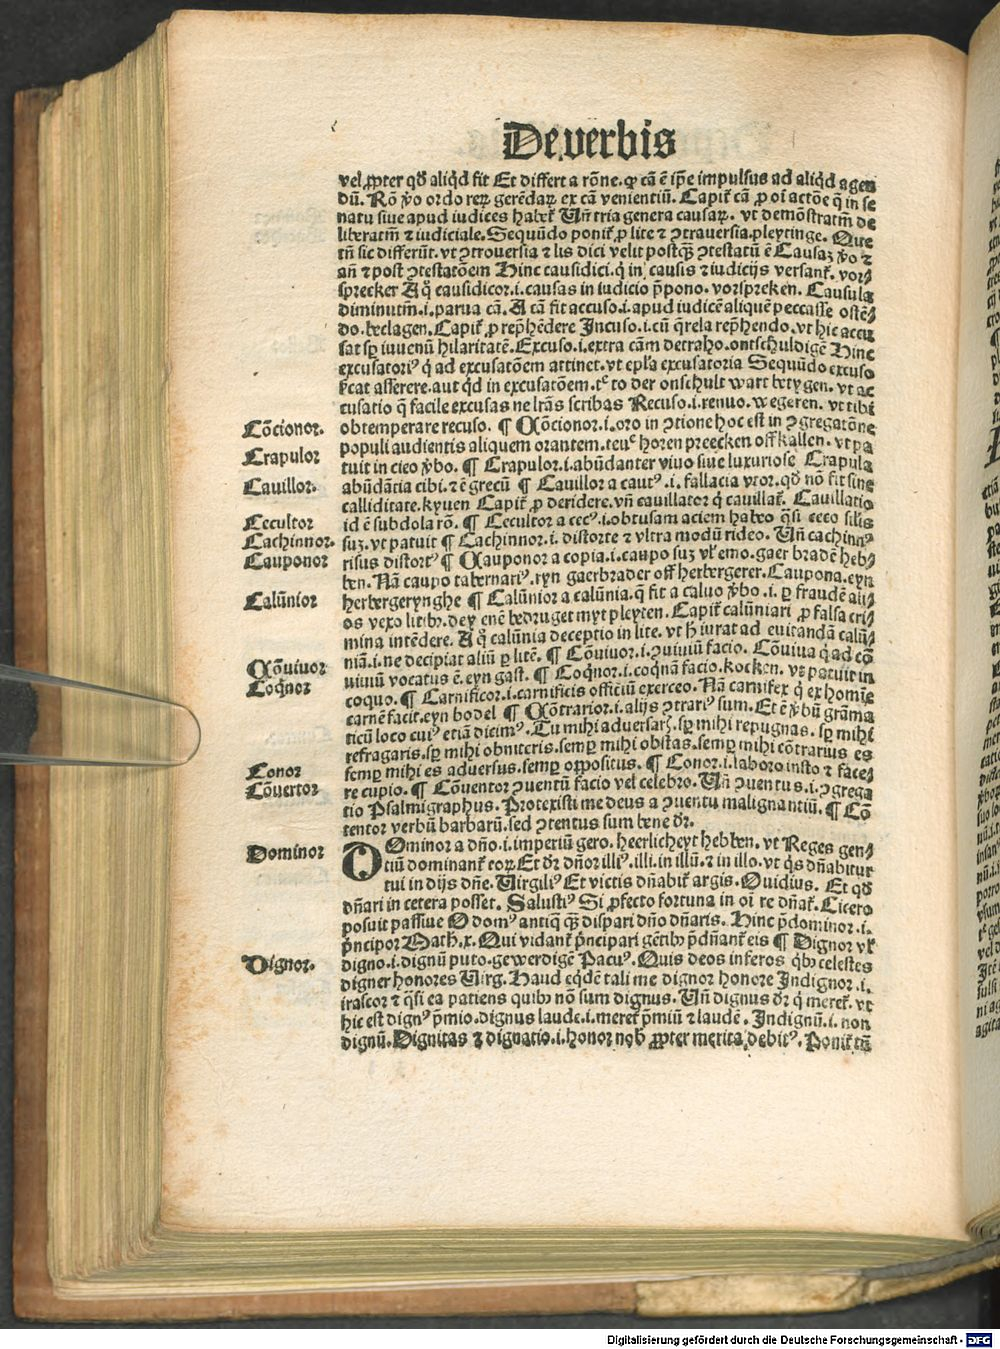 De verbis
vel ꝓpter qđ aliqͥd fit Et differt a rōne. qꝛ cā ē ip̄e impulsus ad aliqͥd agen
dū. Rō ꝟo ordo reꝝ gerēdaꝝ ex cā venientiū. Capit᷑ cā ꝓ oī actōe q̄ in se
natu siue apud iudices habet᷑ Vn̄ tria genera causaꝝ. vt demōstratm̄ de
liberatm̄ ⁊ iudiciale. Sequūdo ponit᷑ ꝓ lite ⁊ ꝯtrauersia. pleytinge. Que
tn̄ sic differūt. vt ꝯtrouersia ⁊ lis dici velit postqꝫ ꝯtestatū ē Causaꝫ ꝟo ⁊
an̄ ⁊ post ꝯtestatōem Hinc causidici. qͥ in causis ⁊ iudicijs versant᷑. vor⸗
sprecker A qͦ causidicor. i. causas in iudicio p̄pono. vorspreken. Causula
diminutm̄. i. parua cā. A cā fit accuso. i. apud iudicē aliquē peccasse ostē⸗
do. beclagen. Capit᷑ ꝓ rep̄hēdere Incuso. i. cū q̄rela rep̄hendo. vt hic accu
sat sꝑ iuuenū hilaritatē. Excuso. i. extra cām detraho. ontschuldigē Hinc
excusatoriꝰ qͥ ad excusatōem attinet. vt epl̄a excusatoria Sequūdo excuso
ẜcat asserere. aut qͥd in excusatōem. tͨ to der onschult wart betygen. vt ac
cusatio q̄ facile excusas ne lr̄as scribas Recuso. i. renuo. wegeren. vt tibi
Cōcionor. obtemperare recuso. ¶ Cōcionor. i. oro in ꝯtione hoc est in ꝯgregatōne
populi audientis aliquem orantem. teuͨ horen preecken off kallen. vt pa
Crapulor tuit in cieo ꝟbo. ¶ Crapulor. i. abūdanter viuo siue luxuriose Crapula
Cauillor. abūdātia cibi. ⁊ ē grecū ¶ Cauillor a cautꝰ. i. fallacia vtor. qđ nō fit sine
calliditate. kyuen Capit᷑ ꝓ deridere. vn̄ cauillator qͥ cauillat᷑. Cauillatio
Cecultor id ē subdola rō. ¶ Cecultor a cecꝰ. i. obtusam aciem habeo qͣsi ceco silis
Cachinnor. suꝫ. vt patuit ¶ Cachinnor. i. distorte ⁊ vltra modū rideo. Vn̄ cachinnꝰ
Cauponor risus distortꝰ ¶ Cauponor a copia. i. caupo suꝫ vl᷑ emo. gaer bradē heb⸗
ben. Nā caupo tabernariꝰ. eyn gaerbrader off herbergerer. Caupona. eyn
Calūnior herbergerynghe ¶ Calūnior a calūnia. q̄ fit a caluo ꝟbo. i. ꝑ fraudē ali⸗
os vexo litibꝫ. dey enē bedruget myt pleyten. Capit᷑ calūniari ꝓ falsa cri⸗
mina intēdere. A qͦ calūnia deceptio in lite. vt ħ iurat ad euitandā calū⸗
niā. i. ne decipiat aliū ꝑ litē. ¶ Cōuiuor. i. ꝯuiuiū facio. Cōuiua qͥ ad cō
Cōuiuor uiuiū vocatus ē. eyn gast. ¶ Coqͥnor. i. coqͥnā facio. kocken. vt patuit in
Coqͥnor coquo. ¶ Carnificor. i. carnificis officiū exerceo. Nā carnifex qͥ ex homīe
carnē facit. eyn bodel ¶ Cōtrarior. i. alijs ꝯtrariꝰ sum. Et ē ꝟbū grāma
ticū loco cuiꝰ etiā dicimꝰ. Tu mihi aduersarꝭ. sꝑ mihi repugnas. sꝑ mihi
refragaris. sꝑ mihi obniteris. semꝑ mihi obstas. semꝑ mihi cōtrarius es
Conor semꝑ mihi es aduersus. semꝑ oppositus. ¶ Conor. i. laboro insto ⁊ face⸗
Cōuertor re cupio. ¶ Cōuentor ꝯuentū facio vel celebro. Vn̄ ꝯuentus. i. ꝯgrega
tio Psalmigraphus. Protexisti me deus a ꝯuentu malignantiū. ¶ Cō
tentor verbū barbarū. sed ꝯtentus sum bene dr̄.
Dominor DOminor a dn̄o. i. imperiū gero. heerlicheyt hebben. vt Reges gen⸗
tiū dominant᷑ eoꝝ. Et dr̄ dn̄or illiꝰ. illi. in illū. ⁊ in illo. vt qͥs dn̄abitur
tui in dijs dn̄e. Virgiliꝰ Et victis dn̄abit᷑ argis. Ouidius. Et qđ
dn̄ari in cetera posset. Salustiꝰ Si ꝓfecto fortuna in oī re dn̄at᷑. Cicero
posuit passiue O domꝰ antiq̄ qꝫ dispari dn̄o dn̄aris. Hinc p̄dominor. i.
pͥncipor Math. x. Qui vidant᷑ pͥncipari gētibꝫ p̄dn̄ant᷑ eis ¶ Dignor vl᷑
Dignor. digno. i. dignū puto. gewerdigē Pacuꝰ. Quis deos inferos qͥbꝫ celestes
digner honores Virg. Haud eqͥdē tali me dignor honore Indignor. i.
irascor ⁊ qͣsi ea patiens quibꝫ nō sum dignus. Vn̄ dignus dr̄ qͥ meret᷑. vt
hic est dignꝰ p̄mio. dignus laude. i. meret᷑ p̄miū ⁊ laudē. Indignū. i. non
dignū. Dignitas ⁊ dignatio. i. honor nob ꝓpter merita debitꝰ. Ponit᷑ tn̄
Digitalisierung gefördert durch die Deutsche Forschungsgemeinschaft - DFG